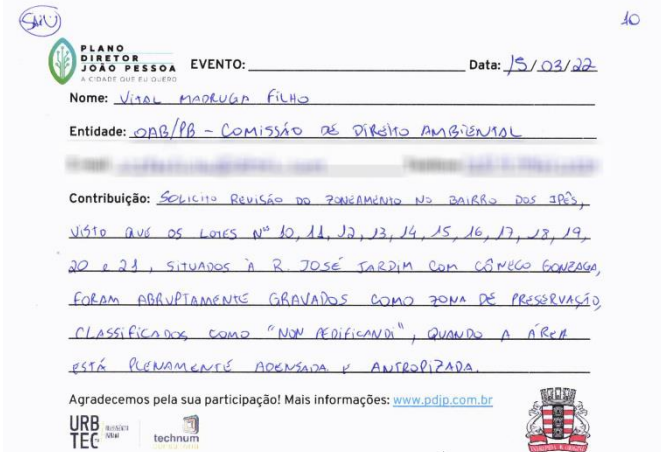 SAIU
10
PLANO
DIRETOR
JOÃO PESSOA
A CIDADE QUE EU QUERO
EVENTO: Data: 15/03/22
Nome: VITAL MADRUGA FILHO
Entidade: OAB/PB - COMISSÃO DE DIREITO AMBIENTAL
Contribuição: SOLICITO REVISÃO DO ZONEAMENTO NO BAIRRO DOS IPÊS,
VISTO QUE OS LOTES Nº 10, 11, 12, 13, 14, 15, 16, 17, 18, 19,
20 e 21, SITUADOS À R. JOSÉ JARDIM COM CÔNEGO GONZAGA,
FORAM ABRUPTAMENTE GRAVADOS COMO ZONA DE PRESERVAÇÃO,
CLASSIFICADOS COMO "NON AEDIFICANDI", QUANDO A ÁREA
ESTÁ PLENAMENTE ADENSADA E ANTROPIZADA.
Agradecemos pela sua participação! Mais informações: www.pdjp.com.br
URB
TEC
technum